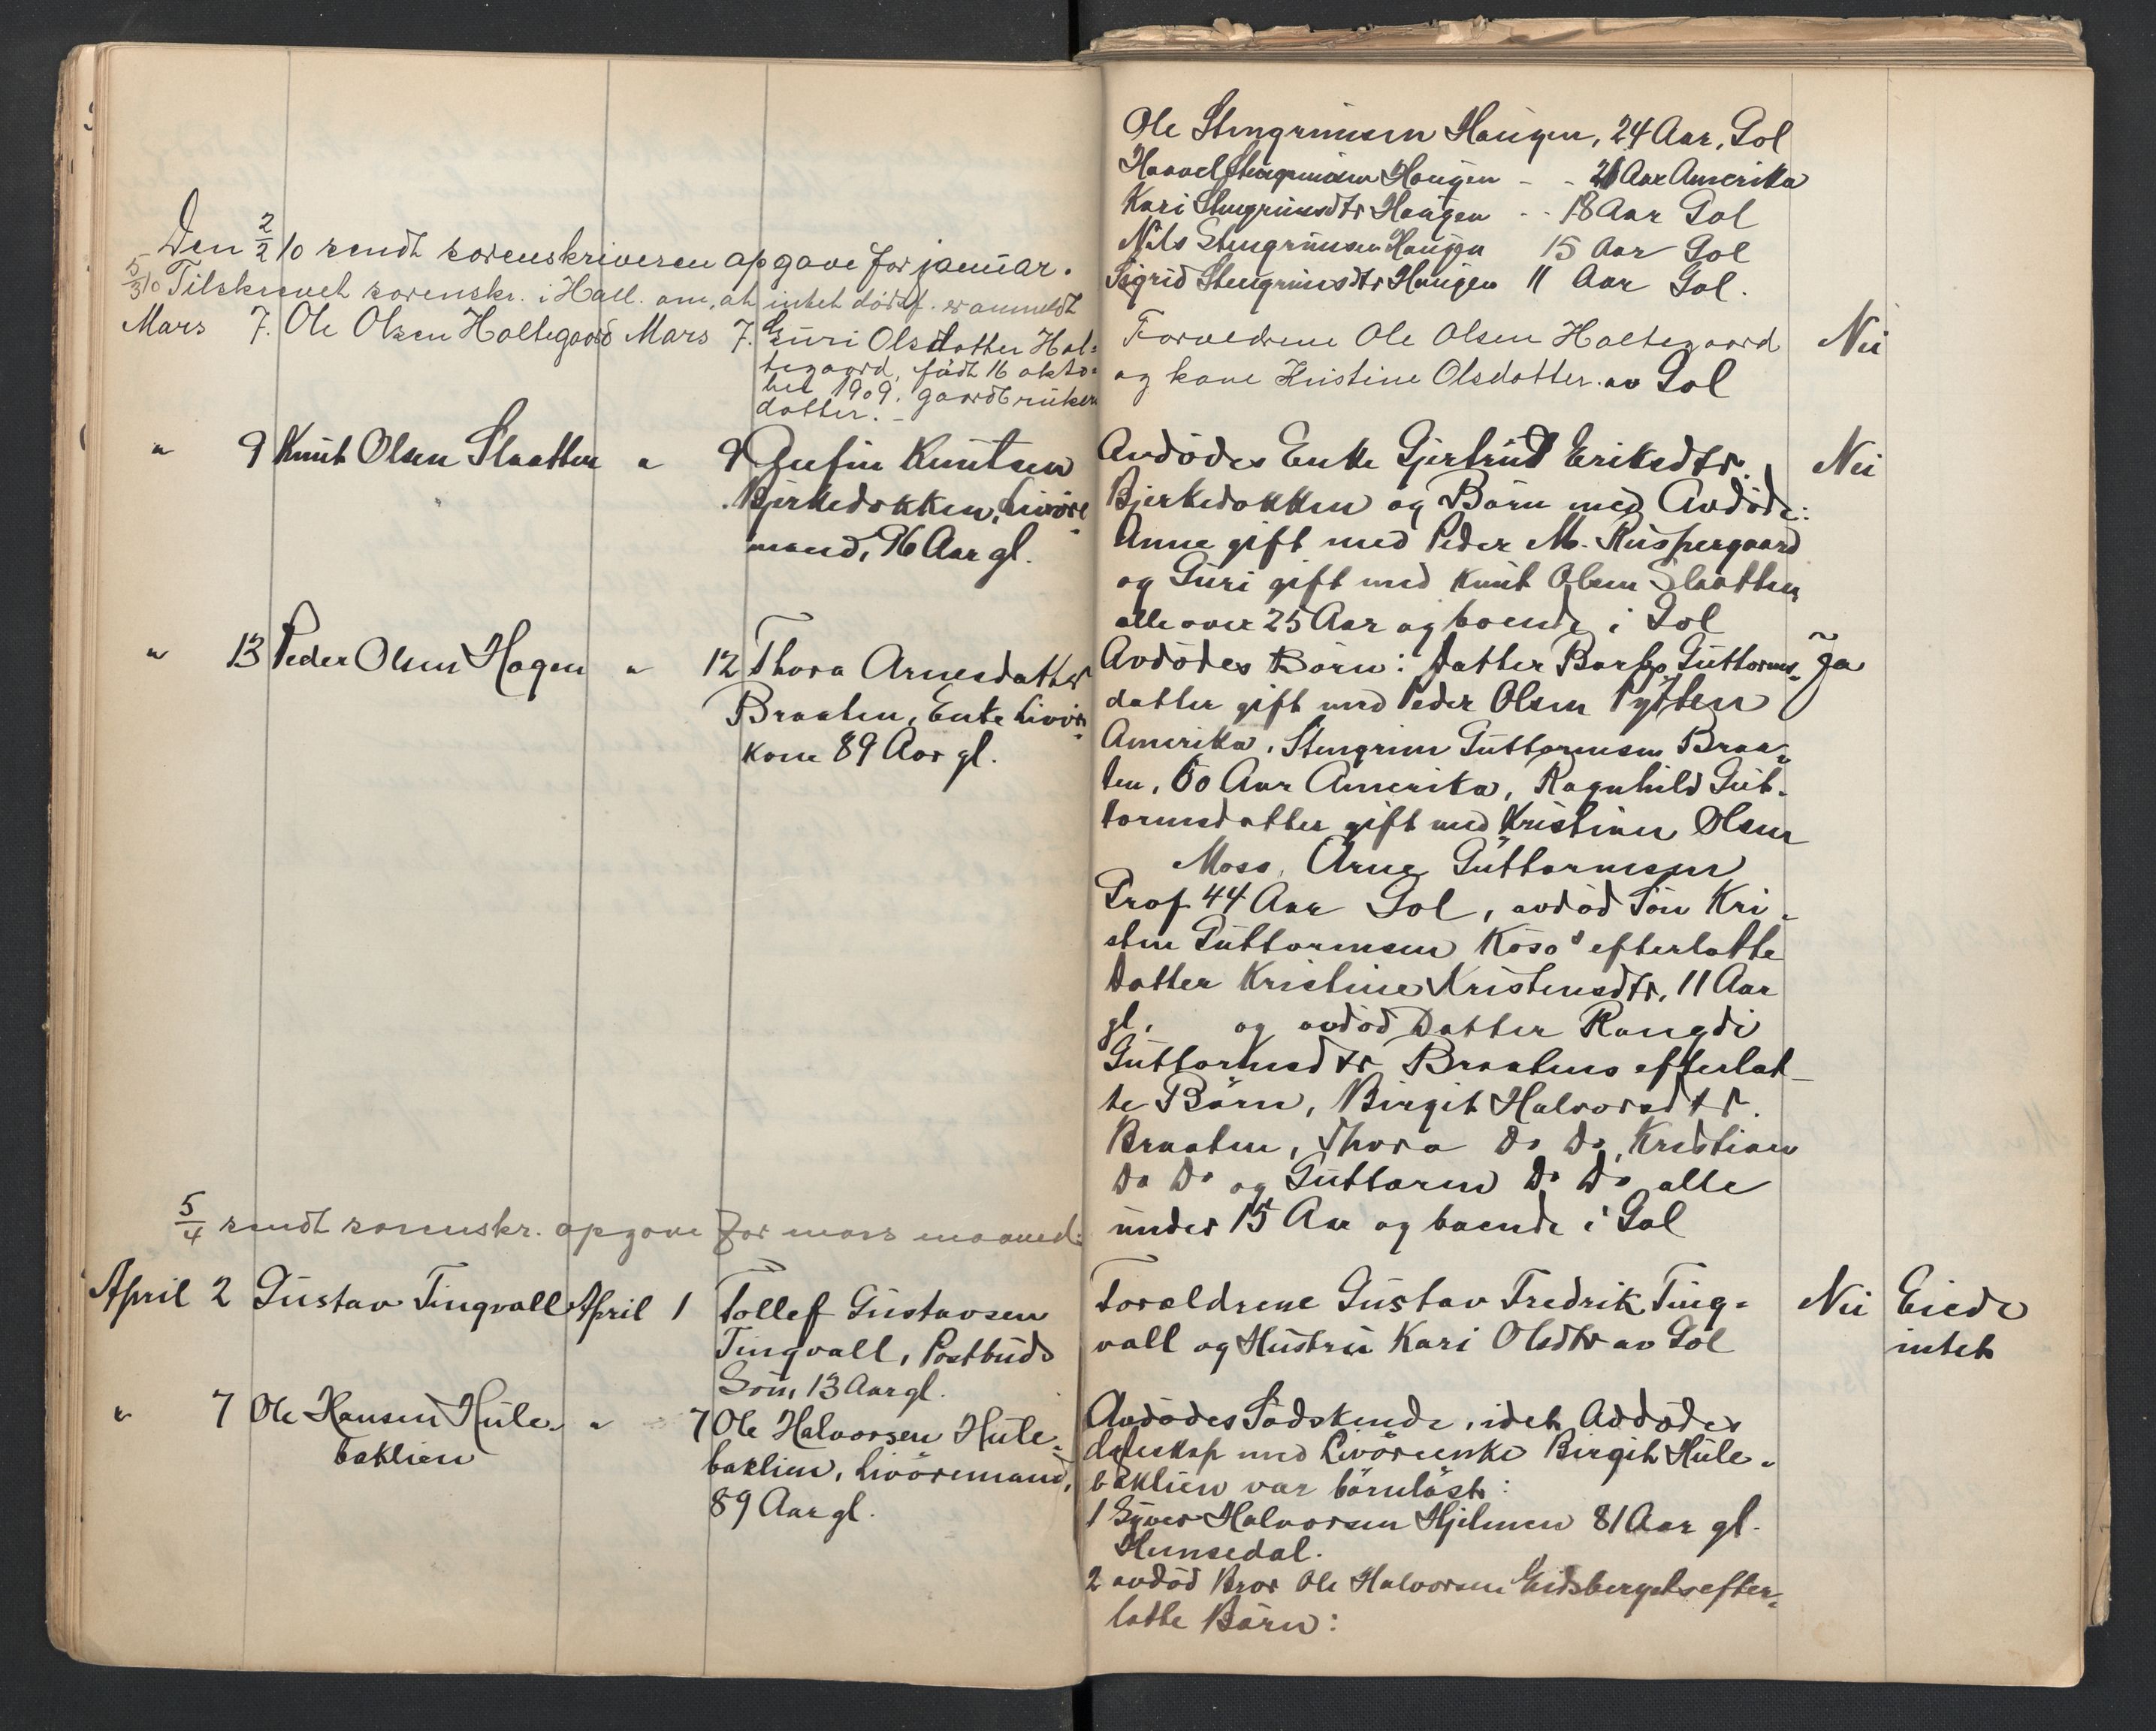 Ole Stengrimsen Haugen, 24 Aar, Gol
Haavel Stengrimsen Haugen - - 21 Aar Amerika
Kari Stengrimsdtr Haugen - - 18 Aar Gol
Nils Stengrimsen Haugen 15 Aar Gol
Sigrid Stengrimsdtr Haugen 11 Aar Gol.
Den 2/2 10 sendt sorenskriveren opgave for januar.
5/3 10 Tilskrevet sorenskr. i Hall. om, at intet dødsf. er anmeldt
Mars 7. Ole Olsen Holtegaard Mars 7. Guri Olsdatter Hol=
tegaard, født 16 okto=
ber 1909, gaardbruker
datter. -
Forældrene Ole Olsen Holtegaard
og kone Kristine Olsdatter av Gol
Nei
" 9 Knut Olsen Slaatten " 9 Knutsen
Bjerkedokken, Livöre
mand, 96 Aar gl.
Avdödes Enke Gjertrud Eriksdtr.
Bjerkedokken og Börn med Avdöde:
Anne gift med Peder M. Ruspergaard
og Guri gift med Knut Olsen Slaatten
alle over 25 Aar og boende i Gol
Nei
" 13 Peder Olsen Hagen " 12 Thora Arnesdatter
Braaten, Enke Livör=
kone 89 Aar gl.
Avdödes Börn: Datter Guttorms=
datter gift med Peder Olsen Pytten
Amerika, Stengrim Guttormsen Braa=
ten, 60 Aar Amerika, Ragnhild Gut-
tormsdatter gift med Kristian Olsen
Moss, Arne Guttormsen
Prof 44 Aar Gol, avdöd Sön Kri-
sten Guttormsen efterlatte
Datter Kristine Kristensdtr, 11 Aar
gl. og avdöd Datter Rangdi
Guttormsdtr Braatens efterlat-
te Börn, Birgit Halvorsdtr.
Braaten, Thora Do Do, Kristian
Do Do og Guttorm Do Do alle
under 15 Aar og boende i Gol
Ja
5/4 sendt sorenskr. opgave for mars maaned.
April 2 Gustav Tingvall April 1 Tollef Gustavsen
Tingvall, Postbuds
Sön, 13 Aar gl.
Forældrene Gustav Fredrik Ting-
vall og Hustru Kari Olsdtr av Gol
Nei Eiede
intet
" 7 Ole Hansen Hule- " 7 Ole Halvorsen Hule=
baklien
baklien, Livöremand,
89 Aar gl.
Avdödes Södskende, idet Avdödes
Egteskap med Livöreenke Birgit Hule-
baklien var börnlöst:
1 Syver Halvorsen Hjelmen 81 Aar gl.
Hemsedal.
2 avdöd Bror Ole Halvorsen Eidsbergets efter=
latte Börn: